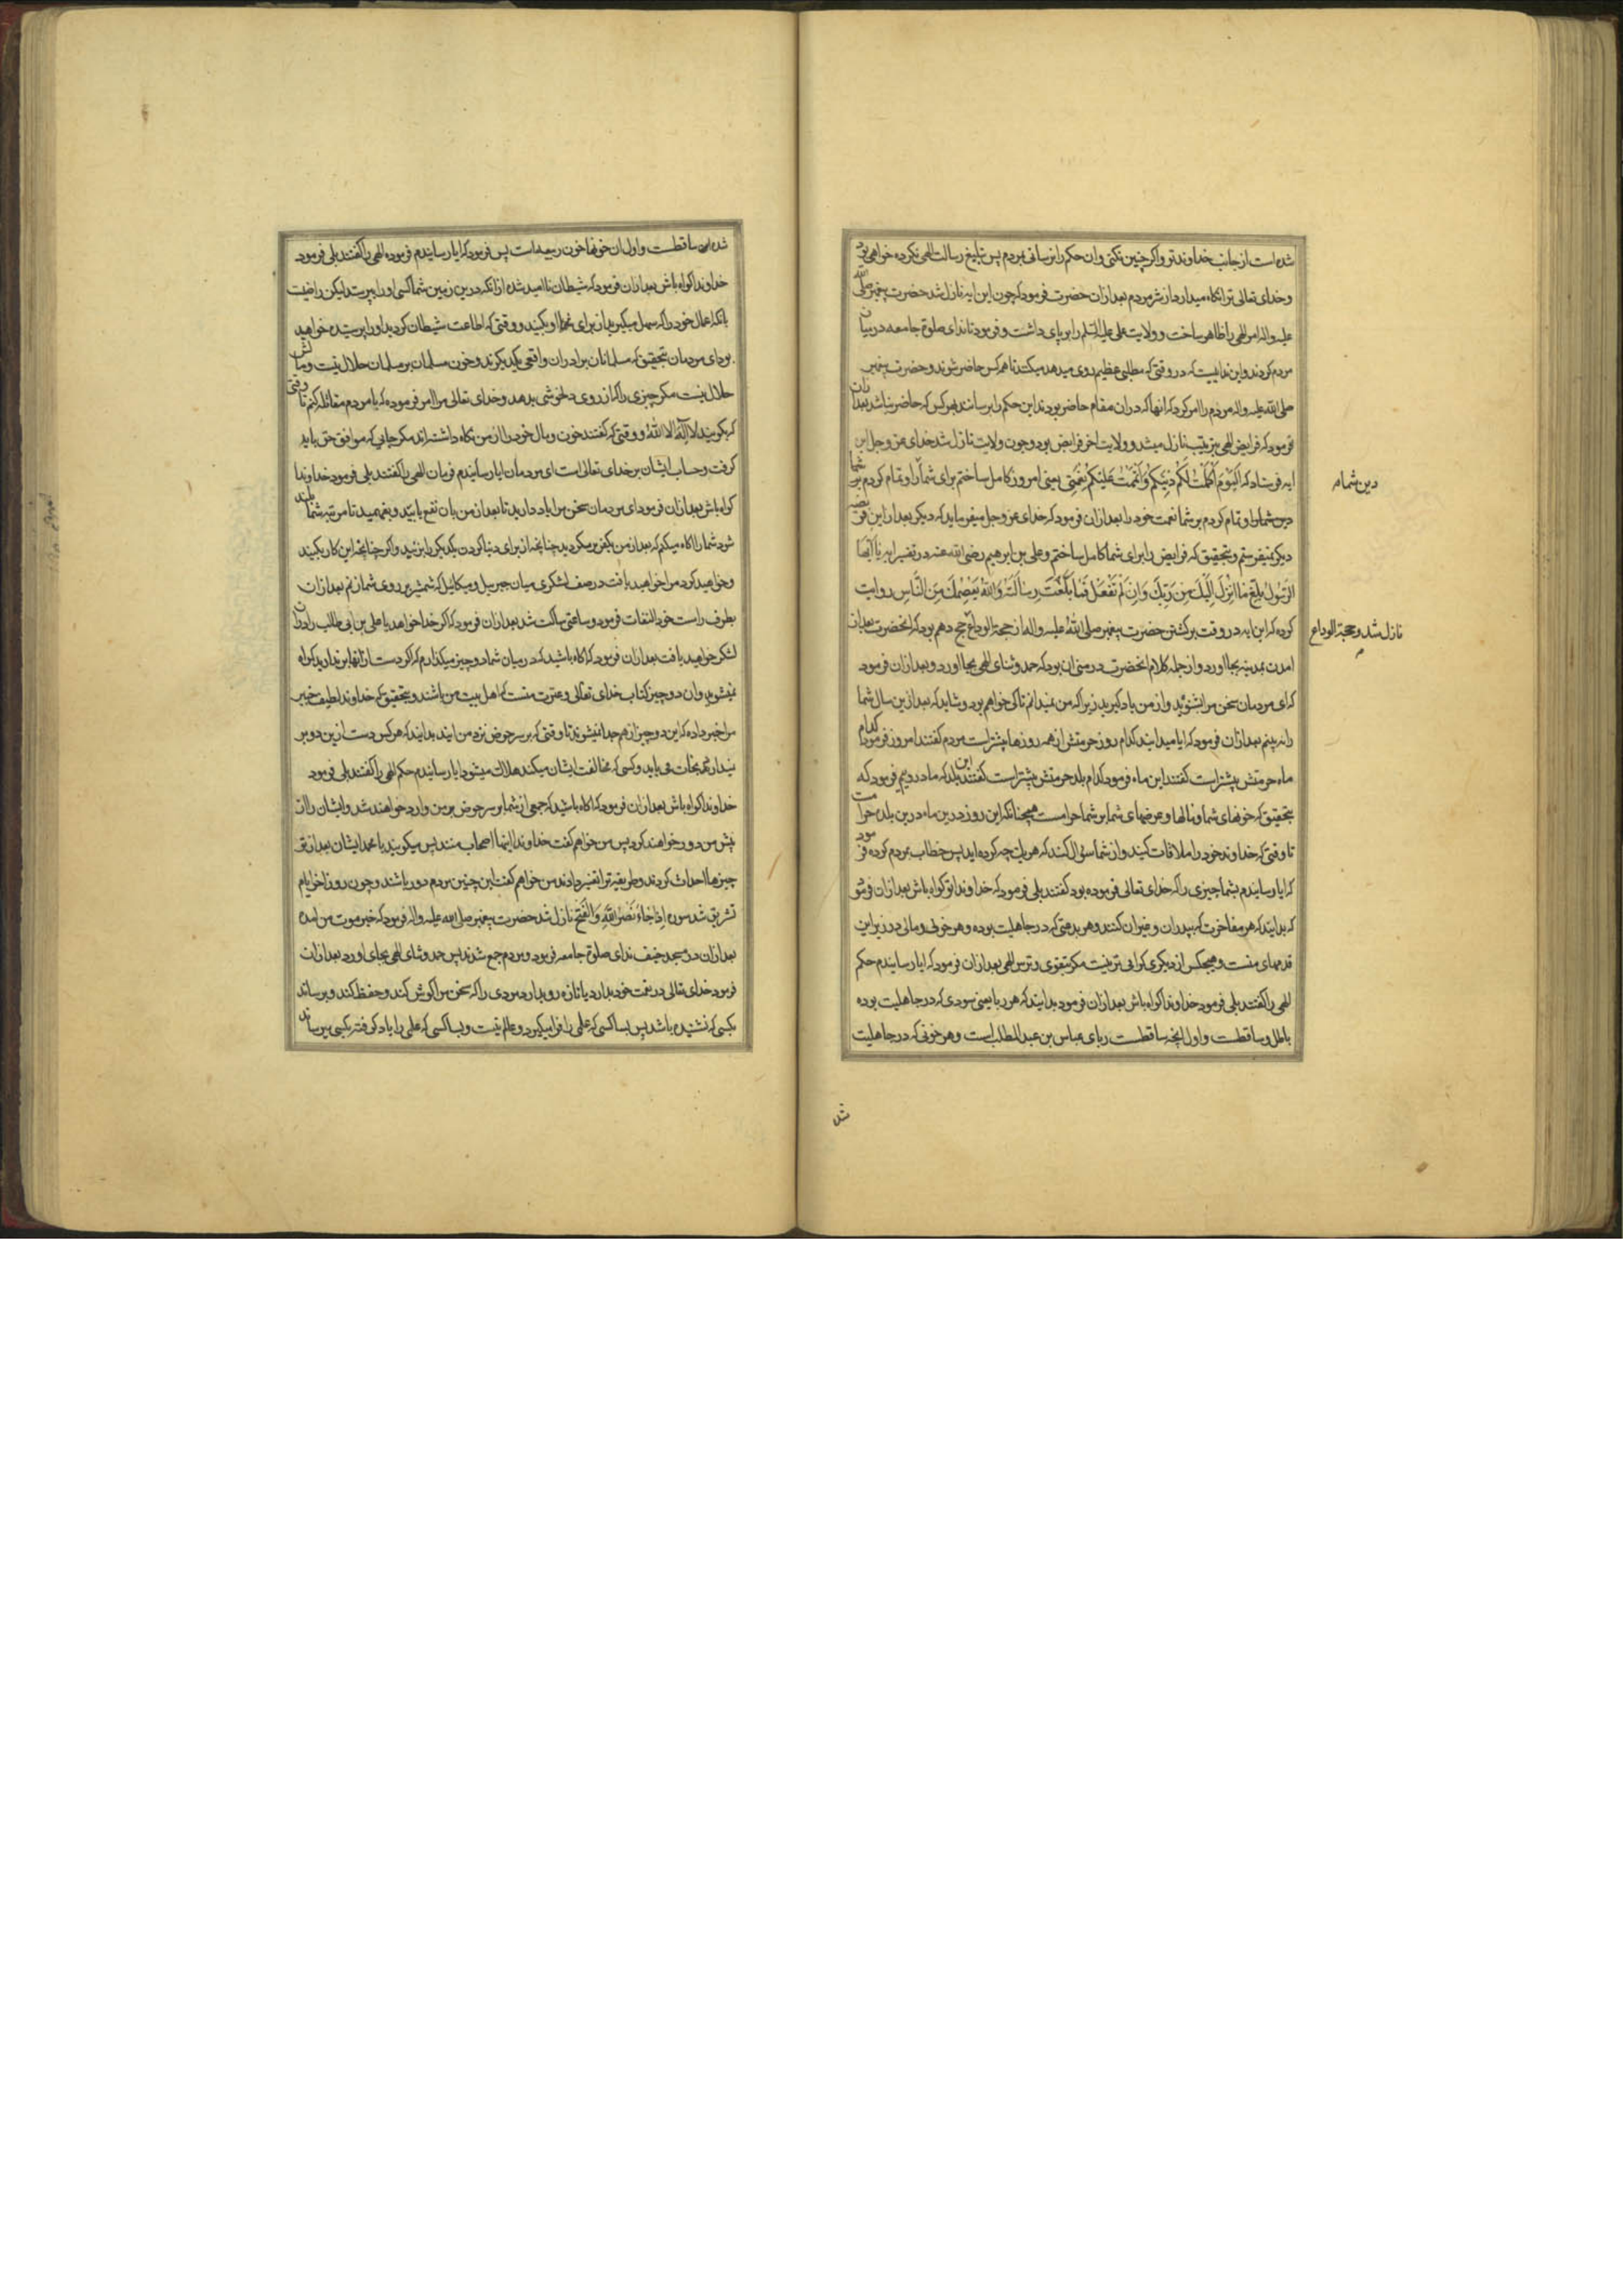 شده است از جانب خداوند تو و اکر چنین نکنی و ان حکم را نرسانی بمردم پس تبلیغ رسالت الهی نکرده خواهی بود
و خدای تعالی ترا نکاه میدارد از شر مردم بعد ازان حضرت فرمود که چون این ایه نازل شد حضرت پیغمبر صلی الله
علیه واله امر الهی را ظاهر ساخت و ولایت علی علیه السلم را بر پای داشت و فرمود تا ندای صلوة جامعه در میان
مردم کردند و این ندائیست که در وقتی که مطلبی عظیم روی میدهد میکنند تا همه کس حاضر شوند و حضرت پیغمبر
صلی الله علیه واله مردم را امر کرد که انها که دران مقام حاضر بودند این حکم را برسانند بهر کس که حاضر نباشد بعد ازان
فرمود که فرایض الهی بترتیب نازل میشد و ولایت اخر فرایض بود و چون ولایت نازل شد خدای عز و جل این
ایه فرستاد که اَلْیَوْمَ اَکْمَلْتُ لَکُمْ دِینَکُمْ وَاَتْمَمْتُ عَلَیْکُمْ نِعْمَتِی یعنی امروز کامل ساختم برای شما را و تمام کردم بر شما
دین شما م
دین شما را و تمام کردم بر شما نعمت خود را بعد ازان فرمود که خدای عز و جل میفرماید که دیکر بعد از این فریضه
دیکر نمیفرستم و بتحقیق که فرایض را برای شما کامل ساختم و علی بن ابرهیم رضی الله عنه در تفسیر ایه یَا اَیُّهَا
الرَّسُولُ بَلِّغْ مَا اُنْزِلَ اِلَیْکَ مِنْ رَبِّکَ وَاِنْ لَمْ تَفْعَلْ فَمَا بَلَّغْتَ رِسَالَتَهُ وَاللهُ یَعْصِمُکَ مِنَ النَّاسِ روایت
کرده که این ایه در وقت برکشتن حضرت پیغمبر صلی الله علیه واله از حجة الوداع حج دهم بود که انحضرت بعد از
نازل شد و حجة الوداع م
امدن بمدینه بجا اورد و از جمله کلام انحضرت در منی ان بود که حمد و ثنای الهی بجا اورد و بعد ازان فرمود
که ای مردمان سخن مرا بشنوید و از من یاد کیرید زیرا که من نمیدانم تا کی خواهم بود و شاید که بعد از این سال شما
را نه بینم بعد ازان فرمود که ایا میدانید کدام روز حرمتش از همه روزها بیشتر است مردم کفتند امروز فرمود کدام
ماه حرمتش بیشتر است کفتند این ماه فرمود کدام بلد حرمتش بیشتر است کفتند این بلد که ما درویم فرمود که
بتحقیق که خونهای شما و مالها و عرضهای شما بر شما حرامست همچنانکه این روز درین ماه درین بلده حرامست
تا وقتی که خداوند خود را ملاقات کنید و از شما سؤال کند که هر یک چه کرده اید پس خطاب بمردم کرده فرمود
که ایا رسانیدم بشما چیزی را که خدای تعالی فرموده بود کفتند بلی فرمود که خداوندا تو کواه باش بعد ازان فرمود
که بدانید که هر مفاخرت که بپدران و غیر ان کنند و هر بدعتی که در جاهلیت بوده و هر خونی و مالی در زیر این
قدمهای منست و هیچکس از دیکری کرامی تر نیست مکر بتقوی و ترس الهی بعد ازان فرمود که ایا رسانیدم حکم
الهی را کفتند بلی فرمود خداوندا کواه باش بعد ازان فرمود بدانید که هر ربا یعنی سودی که در جاهلیت بوده
باطل و ساقطست و اول انچه ساقطست ربای عباس بن عبد المطلب است و هر خونی که در جاهلیت
شد
شده ساقطست و اول ان خونها خون ربیعه است پس فرمود که ایا رسانیدم فرموده الهی را کفتند بلی فرمود
خداوندا کواه باش بعد ازان فرمود که شیطان ناامید شده از انکه درین زمین شما کسی او را بپرستد لیکن راضیست
بانکه اعمال خود را که سهل میکیرید از برای او بکنید و وقتی که اطاعت شیطان کردید او را پرستیده خواهید
بود ای مردمان بتحقیق که مسلمانان برادران واقعی یکدیکرند و خون مسلمان بر مسلمان حلال نیست و مالش
حلال نیست مکر چیزی را که از روی دلخوشی بدهد و خدای تعالی مرا امر فرموده که با مردم مقاتله کنم تا وقتی
که بکویند لا اله الا الله و وقتی که کفتند خون و مال خود را از من نکاه داشته اند مکر جایی که موافق حق باید
کرفت و حساب ایشان بر خدای تعالی است ای مردمان ایا رسانیدم فرمان الهی را کفتند بلی فرمود خداوندا
کواه باش بعد ازان فرمود ای مردمان سخن مرا یاد دارید تا بعد از من بان نفع یابید و بفهمید تا مرتبه شما بلند
شود شما را اکاه میکنم که بعد از من بکفر برمکردید چنانچه از برای دنیا کردن یکدیکر را بزنید و اکر چنانچه این کار بکنید
و خواهید کرد مرا خواهید یافت در صف لشکری میان جبرییل و میکائیل که شمشیر بر روی شما زنم بعد ازان
بطرف راست خود التفات فرمود و ساعتی ساکت شد بعد ازان فرمود که اکر خدا خواهد یا علی بن ابی طالب را دران
لشکر خواهید یافت بعد ازان فرمود که اکاه باشید که در میان شما دو چیز میکذارم که اکر دست از انها برندارید کمراه
نمیشوید و ان دو چیز کتاب خدای تعالی و عترت منست که اهل بیت من باشند و بتحقیق که خداوند لطیف خبیر
مرا خبر داده که این دو چیز از هم جدا نمیشوند تا وقتی که بر سر حوض نزد من ایند بدانید که هر کس دست ازین دو بر
ندارد نجات می یابد و کسی که مخالفت ایشان میکند هلاک میشود ایا رسانیدم حکم الهی را کفتند بلی فرمود
خداوندا کواه باش بعد ازان فرمود که اکاه باشید که جمعی از شما بر سر حوض بر من وارد خواهند شد و ایشان را از
پیش من دور خواهند کرد پس من خواهم کفت خداوندا اینها اصحاب منند پس میکویند یا محمد ایشان بعد از تو
چیزها احداث کردند و طریقه ترا تغییر دادند من خواهم کفت این چنین مردم دور باشند و چون روز اخر ایام
تشریق شد سوره اِذَا جَاءَ نَصْرُ اللهِ وَالْفَتْحُ نازل شد حضرت پیغمبر صلی الله علیه واله فرمود که خبر موت من امده
بعد ازان در مسجد خیف ندای صلوة جامعه فرمود و مردم جمع شدند پس حمد و ثنای الهی بجای اورد بعد ازان
فرمود خدای تعالی در نعمت خود بدارد یا تازه رو بدارد مردی را که سخن مرا کوش کند و حفظ کند و برساند
بکسی که نشنیده باشد پس بسا کسی که علمی را فرا میکیرد و عالم نیست و بسا کسی که علمی را یاد کرفته بکسی میرساند